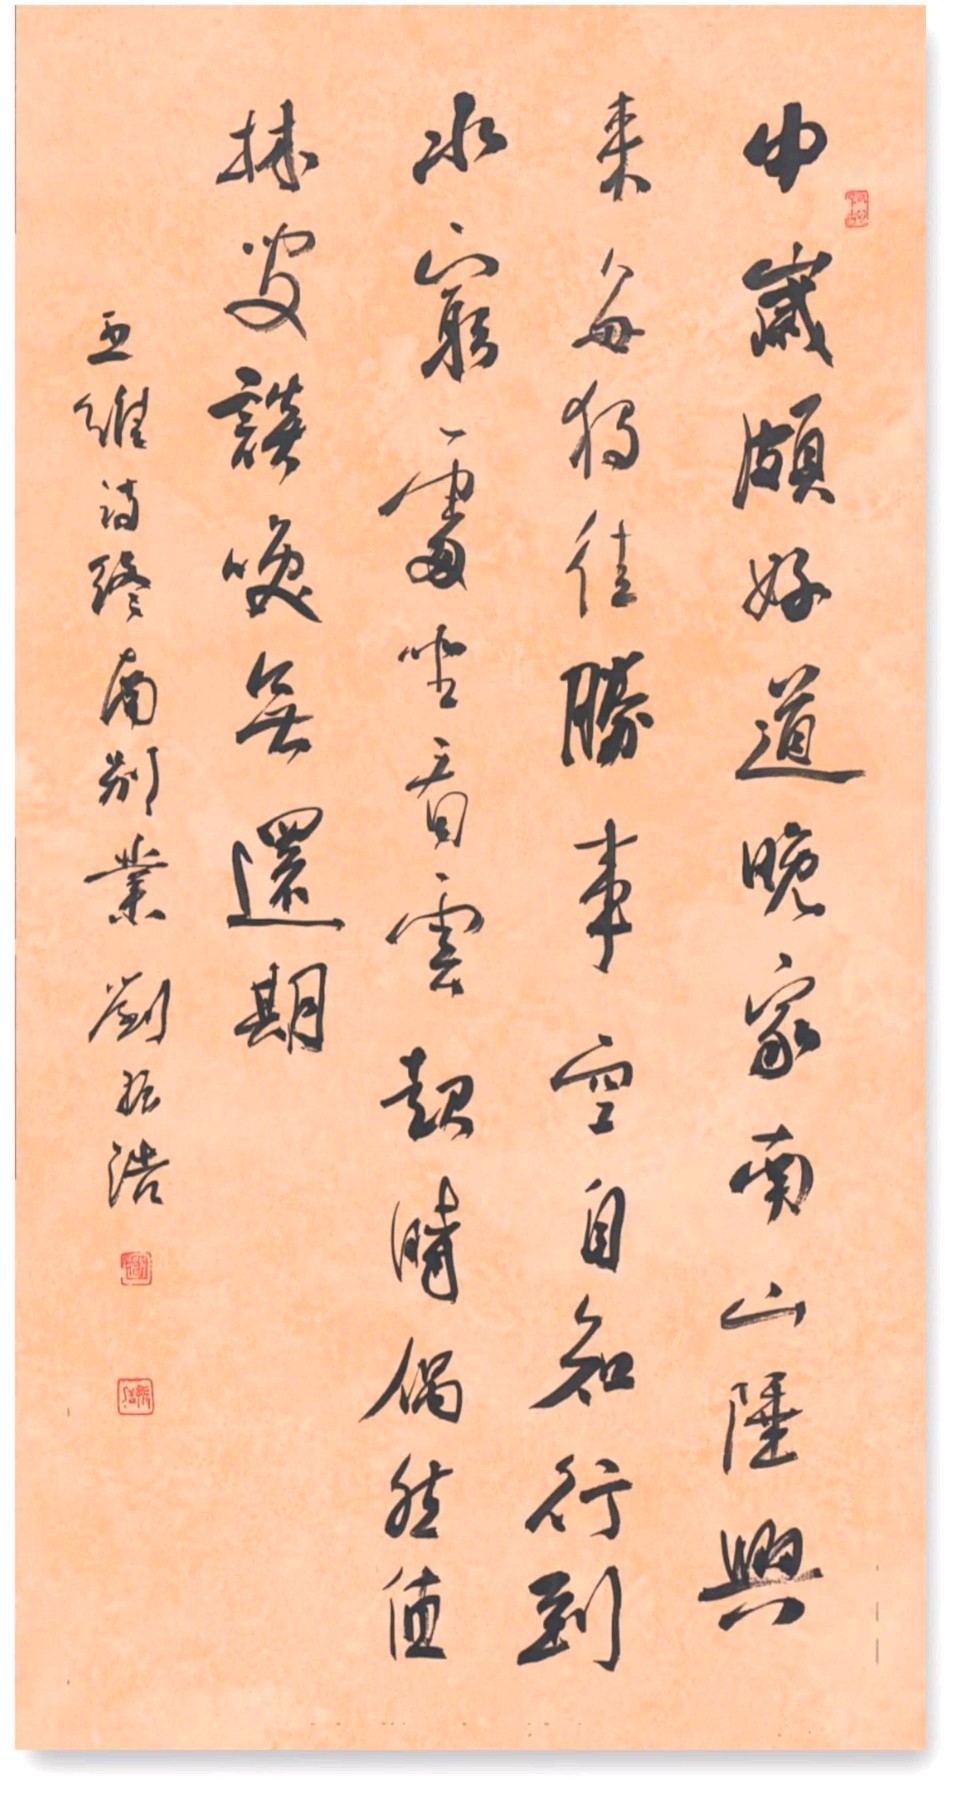 中歲頗好道晚家南山陲興
來每獨往勝事空自知行到
水窮處坐看雲起時偶然值
林叟談笑無還期
王維詩終南別業 劉振浩